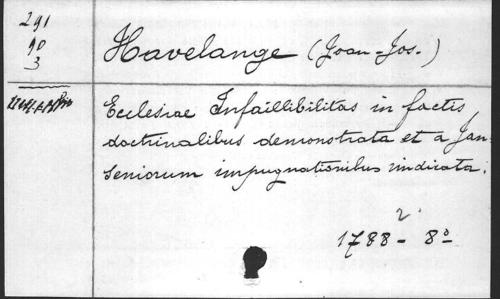 291
90
3
Havelange (Joan-Jos.)
Ecclesiae Infaillibilitas in factis
doctrinalibus demonstrata et a Jan
seniorum impugnationibus vindicata.
2
1788 - 8º